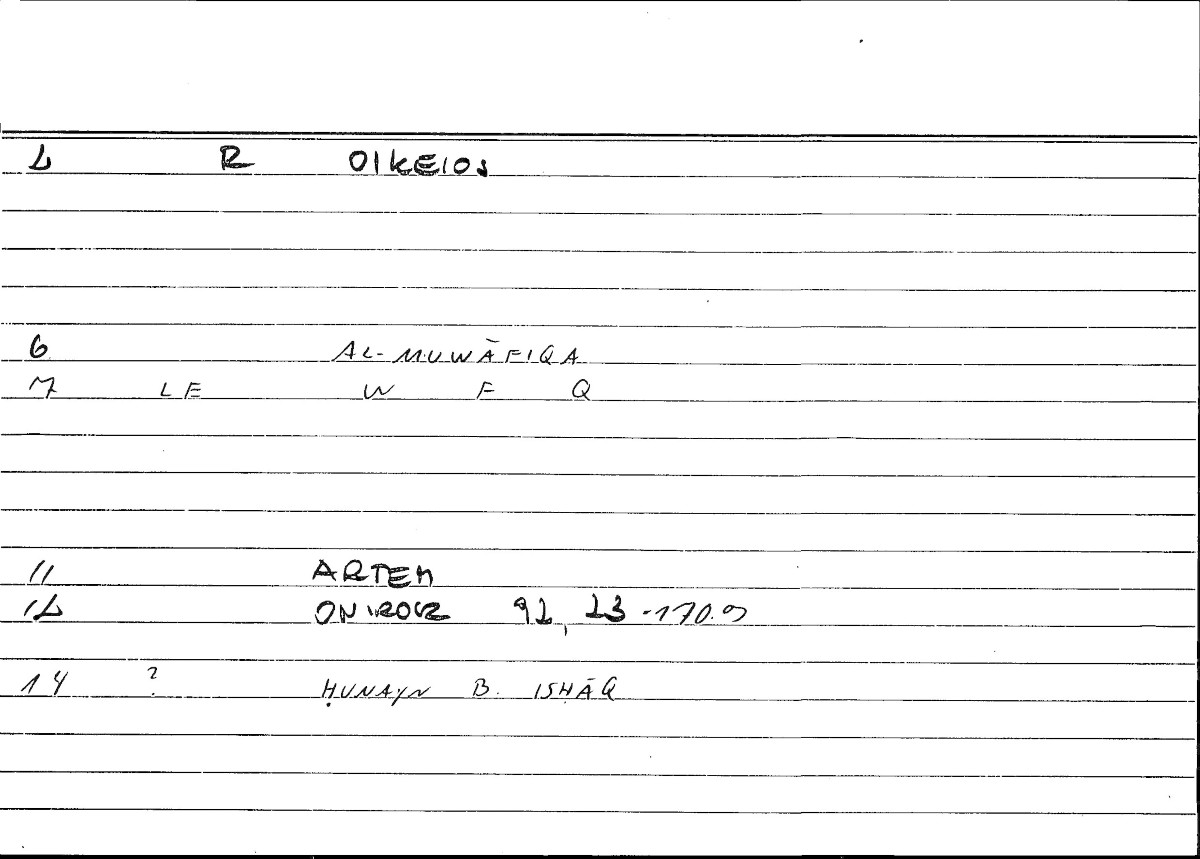 2 R OIKEIOS
6 AL-MUWĀFIQA
7 LE W F Q
11 ARTEM
12 ONIROCR 92, 23 -170.9
14 ? ḤUNAYN B. ISḤĀQ